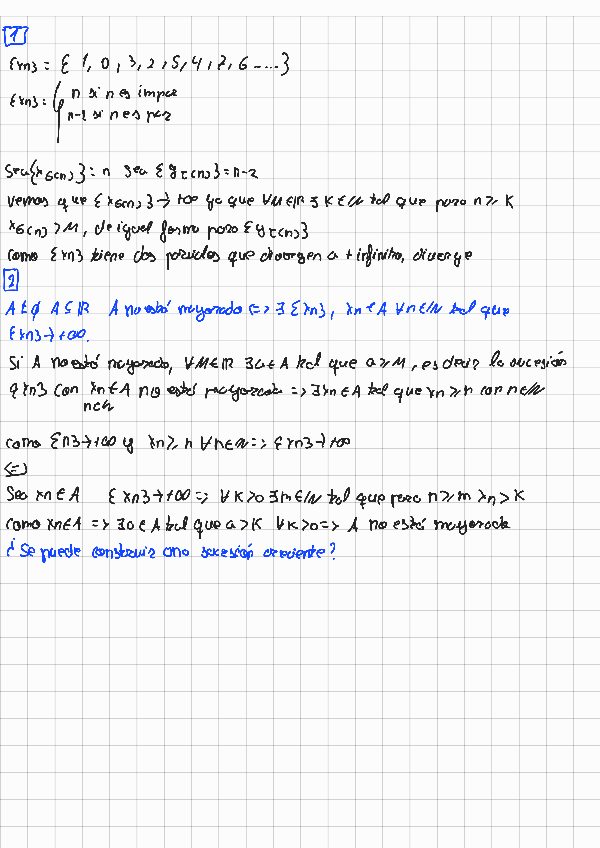 1
{xn} = { 1, 0, 3, 2, 5, 4, 7, 6 ....}
{xn} = { n si n es impar
n-2 si n es par
Sea {x_σ(n)} = n sea {y_τ(n)} = n-2
vemos que {x_σ(n)} → +∞ ya que ∀M∈ℝ ∃ K∈ℕ tal que para n ≥ K
x_σ(n) > M, de igual forma para {y_τ(n)}
como {xn} tiene dos parciales que divergen a + infinito, diverge
2
A ≠ ∅ A ⊆ ℝ A no está mayorado <=> ∃ {xn}, xn ∈ A ∀n∈ℕ tal que
{xn} → +∞.
Si A no está mayorado, ∀M∈ℝ ∃a∈A tal que a ≥ M, es decir la sucesión
{xn} con xn∈A no está mayorada => ∃xn∈A tal que xn ≥ n con n∈ℕ
n∈ℕ
como {n} → +∞ y xn ≥ n ∀n∈ℕ => {xn} → +∞
<=)
Sea xn∈A {xn} → +∞ => ∀K>0 ∃m∈ℕ tal que para n ≥ m xn > K
como xn∈A => ∃a∈A tal que a > K ∀K>0 => A no está mayorado
¿Se puede construir una sucesión creciente?